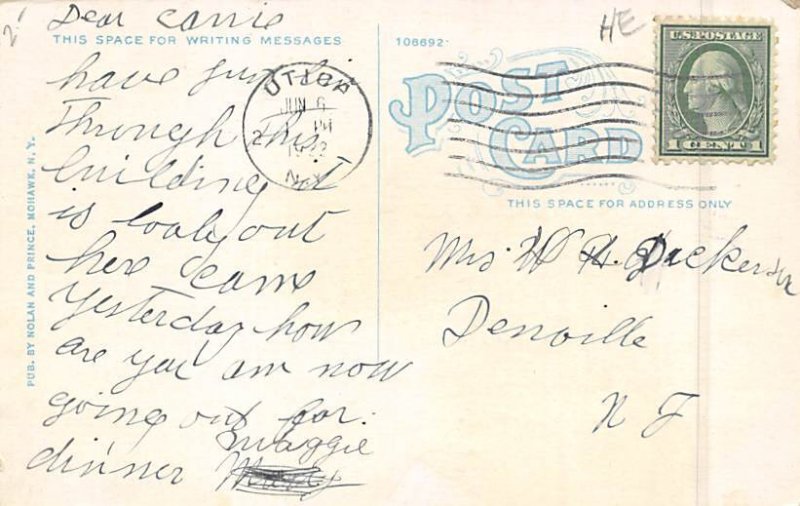 2!
Dear Carrie
THIS SPACE FOR WRITING MESSAGES
have just b
Through this
building it
is lovly out
here came
yesterday how
are you am now
going out for
dinner Maggie
UTICA
JUN 6
PM
N.Y.
PUB. BY NOLAN AND PRINCE, MOHAWK, N. Y.
108692
HE
U.S. POSTAGE
1 CENT 1
POST
CARD
THIS SPACE FOR ADDRESS ONLY
Mrs. W H. Dickerson
Denville
N J